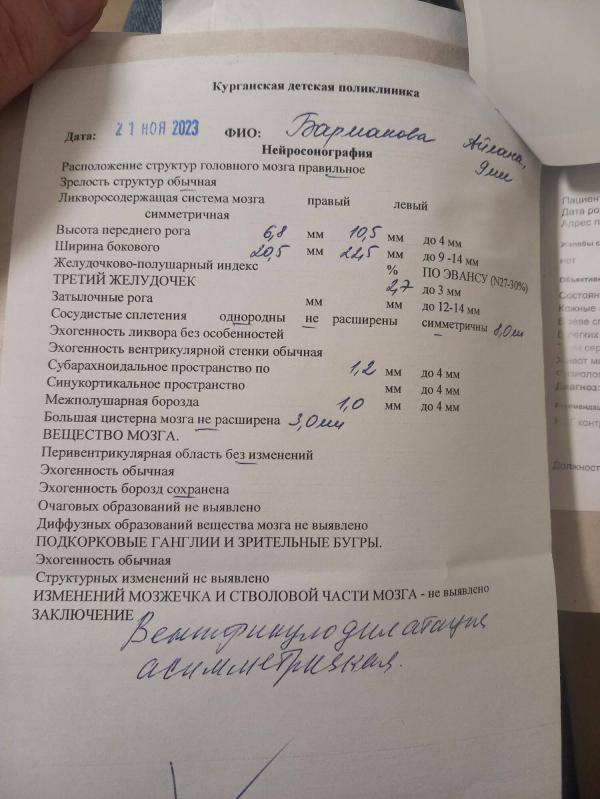 Курганская детская поликлиника
Дата: 21 НОЯ 2023 ФИО: Барманова Айлана,
9мм
Нейросонография
Расположение структур головного мозга правильное
Зрелость структур обычная
Ликворосодержащая система мозга правый левый
симметричная
Высота переднего рога 6,8 мм 10,5 мм до 4 мм
Ширина бокового 20,5 мм 22,5 мм до 9 -14 мм
Желудочково-полушарный индекс % ПО ЭВАНСУ (N27-30%)
ТРЕТИЙ ЖЕЛУДОЧЕК 2,7 до 3 мм
Затылочные рога мм мм до 12-14 мм
Сосудистые сплетения однородны не расширены симметричны 8,0мм
Эхогенность ликвора без особенностей
Эхогенность вентрикулярной стенки обычная
Субарахноидальное пространство по 1,2 мм до 4 мм
Синукортикальное пространство мм до 4 мм
Межполушарная борозда 1,0 мм до 4 мм
Большая цистерна мозга не расширена 3,0мм
ВЕЩЕСТВО МОЗГА.
Перивентрикулярная область без изменений
Эхогенность обычная
Эхогенность борозд сохранена
Очаговых образований не выявлено
Диффузных образований вещества мозга не выявлено
ПОДКОРКОВЫЕ ГАНГЛИИ И ЗРИТЕЛЬНЫЕ БУГРЫ.
Эхогенность обычная
Структурных изменений не выявлено
ИЗМЕНЕНИЙ МОЗЖЕЧКА И СТВОЛОВОЙ ЧАСТИ МОЗГА - не выявлено
ЗАКЛЮЧЕНИЕ
Вентрикулодилатация
асимметрическая.
Пациент
Дата ро
Адрес п
Жалобы
нет
Состоян
Кожные
Диагноз:
Должность